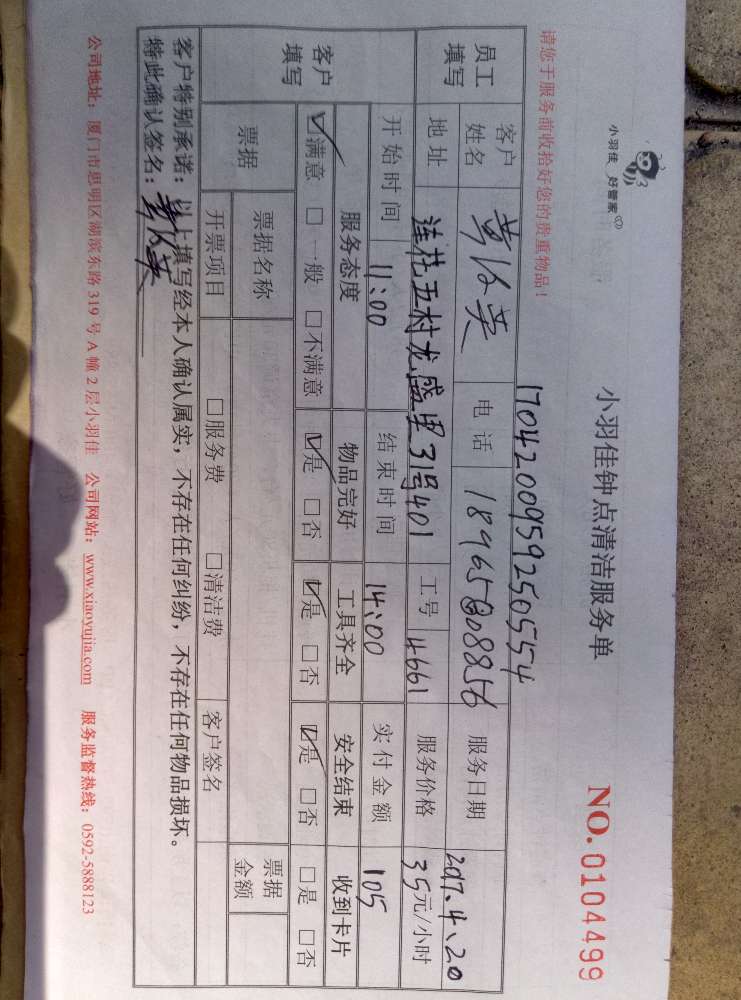 小羽佳 好管家
小羽佳钟点清洁服务单
NO. 0104499
请您于服务前收拾好您的贵重物品！
17042009592505554
员工填写 客户姓名 电话 服务日期 2017.4.20
地址 莲花五村龙盛里31号401 工号 4661 服务价格 35元/小时
开始时间 11:00 结束时间 14:00 实付金额 105
客户填写 服务态度 物品完好 工具齐全 安全结束 收到卡片
☑满意 □一般 □不满意 ☑是 □否 ☑是 □否 ☑是 □否 □是 □否
票据 票据名称 票据金额
开票项目 □服务费 □清洁费 客户签名
客户特别承诺：以上填写经本人确认属实，不存在任何纠纷，不存在任何物品损坏。
特此确认签名：
公司地址：厦门市思明区湖滨东路319号A幢2层小羽佳 公司网站：www.xiaoyujia.com 服务监督热线：0592-5888123